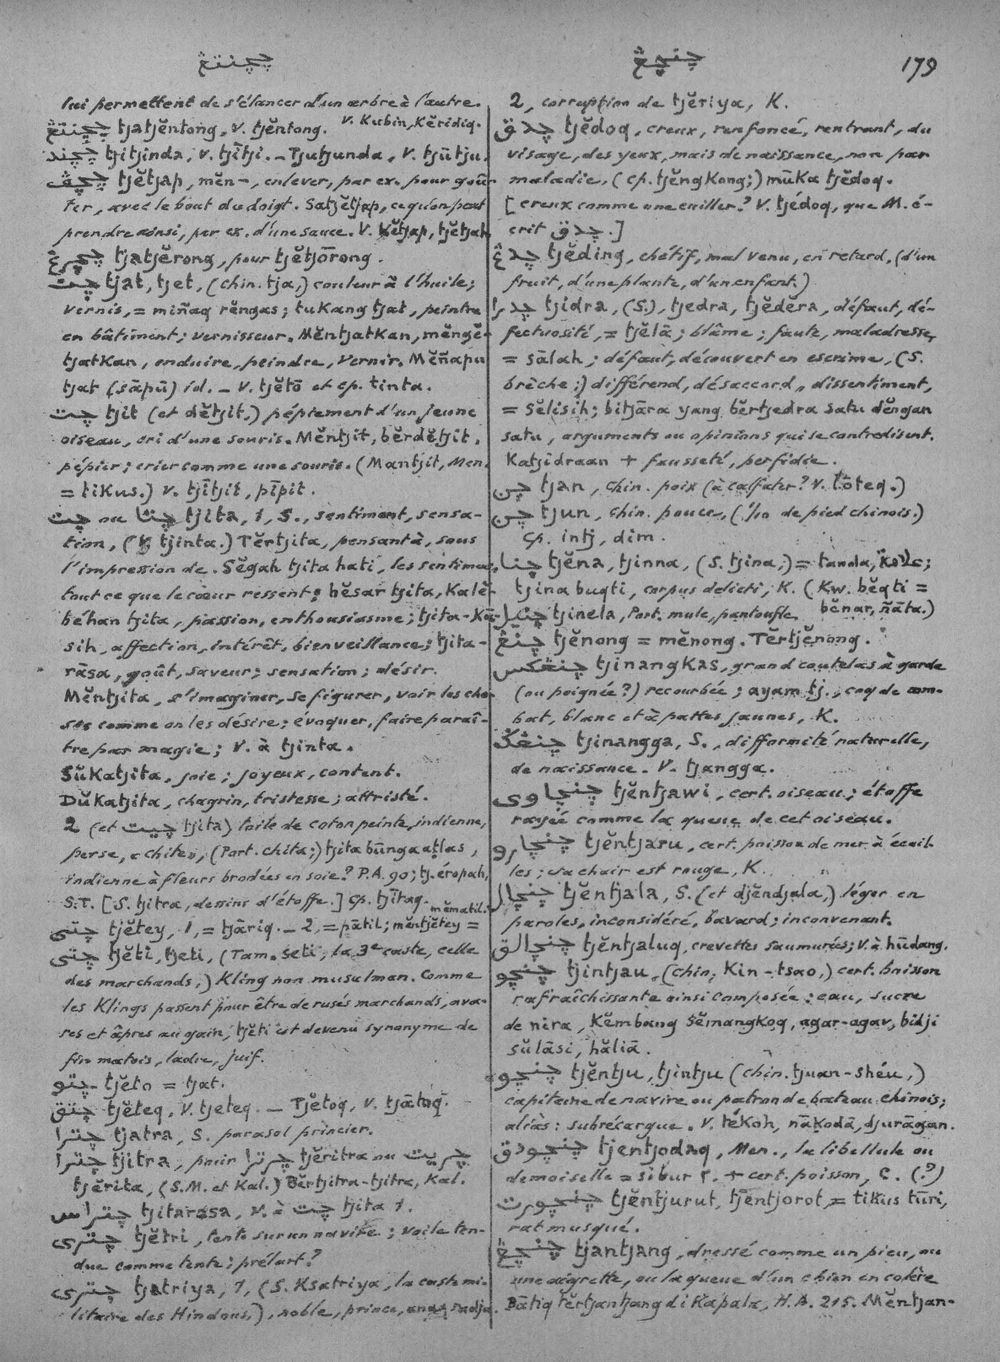 چچنتڠ
چنچڠ
179
lui permettent de s'élancer d'un arbre à l'autre.
V. Kubin, Kĕridiq.
چچنتڠ tjatjĕntong, V. tjĕntong.
چچند tjitjinda, V. tjītji. – Tjutjunda, V. tjūtju.
چچڤ tjĕtjap, mĕn–, enlever, par ex. pour goû-
ter, avec le bout du doigt. Satjĕtjap, ce qu'on peut
prendre ainsi, par ex. d'une sauce. V. kĕtjap, tjĕtjah
چچرڠ tjatjĕrong, pour tjĕtjōrong.
چت tjat, tjet, (chin. tja,) couleur à l'huile;
vernis, = miñaq rĕngas; tukang tjat, peintre
en bâtiment; vernisseur. Mĕntjatkan, mĕngĕ-
tjatkan, enduire, peindre, vernir. Mĕñapu
tjat (sāpū) id. – V. tjĕtō et cp. tinta.
چت tjit (et dĕtjit,) pépiement d'un jeune
oiseau, cri d'une souris. Mĕntjit, bĕrdĕtjit,
pépier; crier comme une souris. (Mantjit, Men.
= tikus.) V. tjītjit, pīpit.
چت ou چتا tjita, 1, S., sentiment, sensa-
tion, (V. tjinta.) Tĕrtjita, pensant à, sous
l'impression de. Sĕgah tjita hati, les sentime.
tout ce que le cœur ressent; bĕsar tjita, Kalĕ-
bĕhan tjita, passion, enthousiasme; tjita-kā-
sih, affection, intérêt, bienveillance; tjita-
rāsa, goût, saveur; sensation; désir.
Mĕntjita, s'imaginer, se figurer, voir les cho-
ses comme on les désire; évoquer, faire paraî-
tre par magie; V. à tjinta.
Sŭkatjita, joie; joyeux, content.
Dŭkatjita, chagrin, tristesse; attristé.
2 (et چيت tjita) toile de coton peinte, indienne,
perse, « chite », (Port. chita;) tjita būnga atlas,
indienne à fleurs brodées en soie? P.A. 90; tj. éropah,
S.T. [S. tjitra, dessins d'étoffe.] Cp. tjītaq.
چتي tjĕtey, 1, = tjāriq. – 2, = pātil; mĕntjĕtey = mĕmatil.
چتي tjĕti, tjeti, (Tam. šeti; la 3e caste, celle
des marchands,) Kling non musulman. Comme
les Klings passent pour être de rusés marchands, ava-
res et âpres au gain, tjĕti est devenu synonyme de
fin matois, ladre, juif.
چتو tjĕto = tjat.
چتق tjĕteq, V. tjeteq. – Tjĕtoq, V. tjātoq.
چترا tjatra, S. parasol princier.
چترا tjitra, pour چرترا tjĕritra ou چريت
tjĕrita, (S.M. et Kal.) Bĕrtjitra-tjitra, Kal.
چتراس tjitarasa, V. à چت tjita 1.
چتري tjĕtri, tente sur un navire; voile ten-
due comme tente; prélart?
چتري tjatriya, 1, (S. Ksatriya, la caste mi-
litaire des Hindous,), noble, prince, anaq radja.
2, corruption de tjĕriya, K.
چدق tjĕdoq, creux, renfoncé, rentrant, du
visage, des yeux, mais de naissance, non par
maladie, (cp. tjĕngkong;) mūka tjĕdoq.
[creux comme une cuiller? V. tjédoq, que M. é-
crit چدق.]
چدڠ tjĕding, chétif, mal venu, en retard, (d'un
fruit, d'une plante, d'un enfant.)
چدرا tjidra, (S.), tjedra, tjĕdĕra, défaut, dé-
fectuosité, = tjĕlā; blâme; faute, maladresse,
= sālah; défaut, découvert en escrime, (S.
brèche;) différend, désaccord, dissentiment,
= sĕlisih; bitjāra yang bĕrtjedra satu dĕngan
satu, arguments ou opinions qui se contredisent.
Katjidraan + fausseté, perfidie.
چن tjan, chin. poix (à calfater? V. tōteq.)
چن tjun, chin. pouce, (1/10 de pied chinois.)
Cp. intj, dim.
چنا tjĕna, tjinna, (S. tjina,) = tanda, ;
tjina buqti, corpus delicti, K. (Kw. bĕqti =
bĕnar, ñāta.)
چنيل tjinela, Port. mule, pantoufle
چنڠ tjĕnong = mĕnong. Tĕrtjĕnong.
چنڠکس tjinangkas, grand coutelas à garde
(ou poignée?) recourbée; ayam tj., coq de com-
bat, blanc et à pattes jaunes, K.
چنڠݢ tjinangga, S., difformité naturelle,
de naissance. V. tjangga.
چنچاوي tjĕntjawi, cert. oiseau; étoffe
rayée comme la queue de cet oiseau.
چنچارو tjĕntjaru, cert. poisson de mer à écail-
les; sa chair est rouge, K.
چنچال tjĕntjala, S. (et djĕndjala,) léger en
paroles, inconsidéré, bavard; inconvenant.
چنچالق tjĕntjaluq, crevettes saumurées; V. à hūdang.
چنچو tjintjau, (chin. Kin-tsao,) cert. boisson
rafraîchissante ainsi composée: eau, sucre
de nira, kĕmbang sĕmangkoq, agar-agar, bidji
sŭlāsi, hāliā.
چنچو tjĕntju, tjintju (chin. tjuan-shéu,)
capitaine de navire ou patron de bateau chinois;
aliàs: subrécargue. V. tékoh, nākodā, djurāgan.
چنچودق tjentjodaq, Men., la libellule ou
demoiselle = sibur 2. + cert. poisson, C. (?)
چنچورت tjĕntjurut, tjĕntjorot, = tikus tūri,
rat musqué.
چنچڠ tjantjang, dressé comme un pieu, ou
une aigrette, ou la queue d'un chien en colère
Bātiq tĕrtjantjang di kapala, H.A. 215. Mĕntjan-